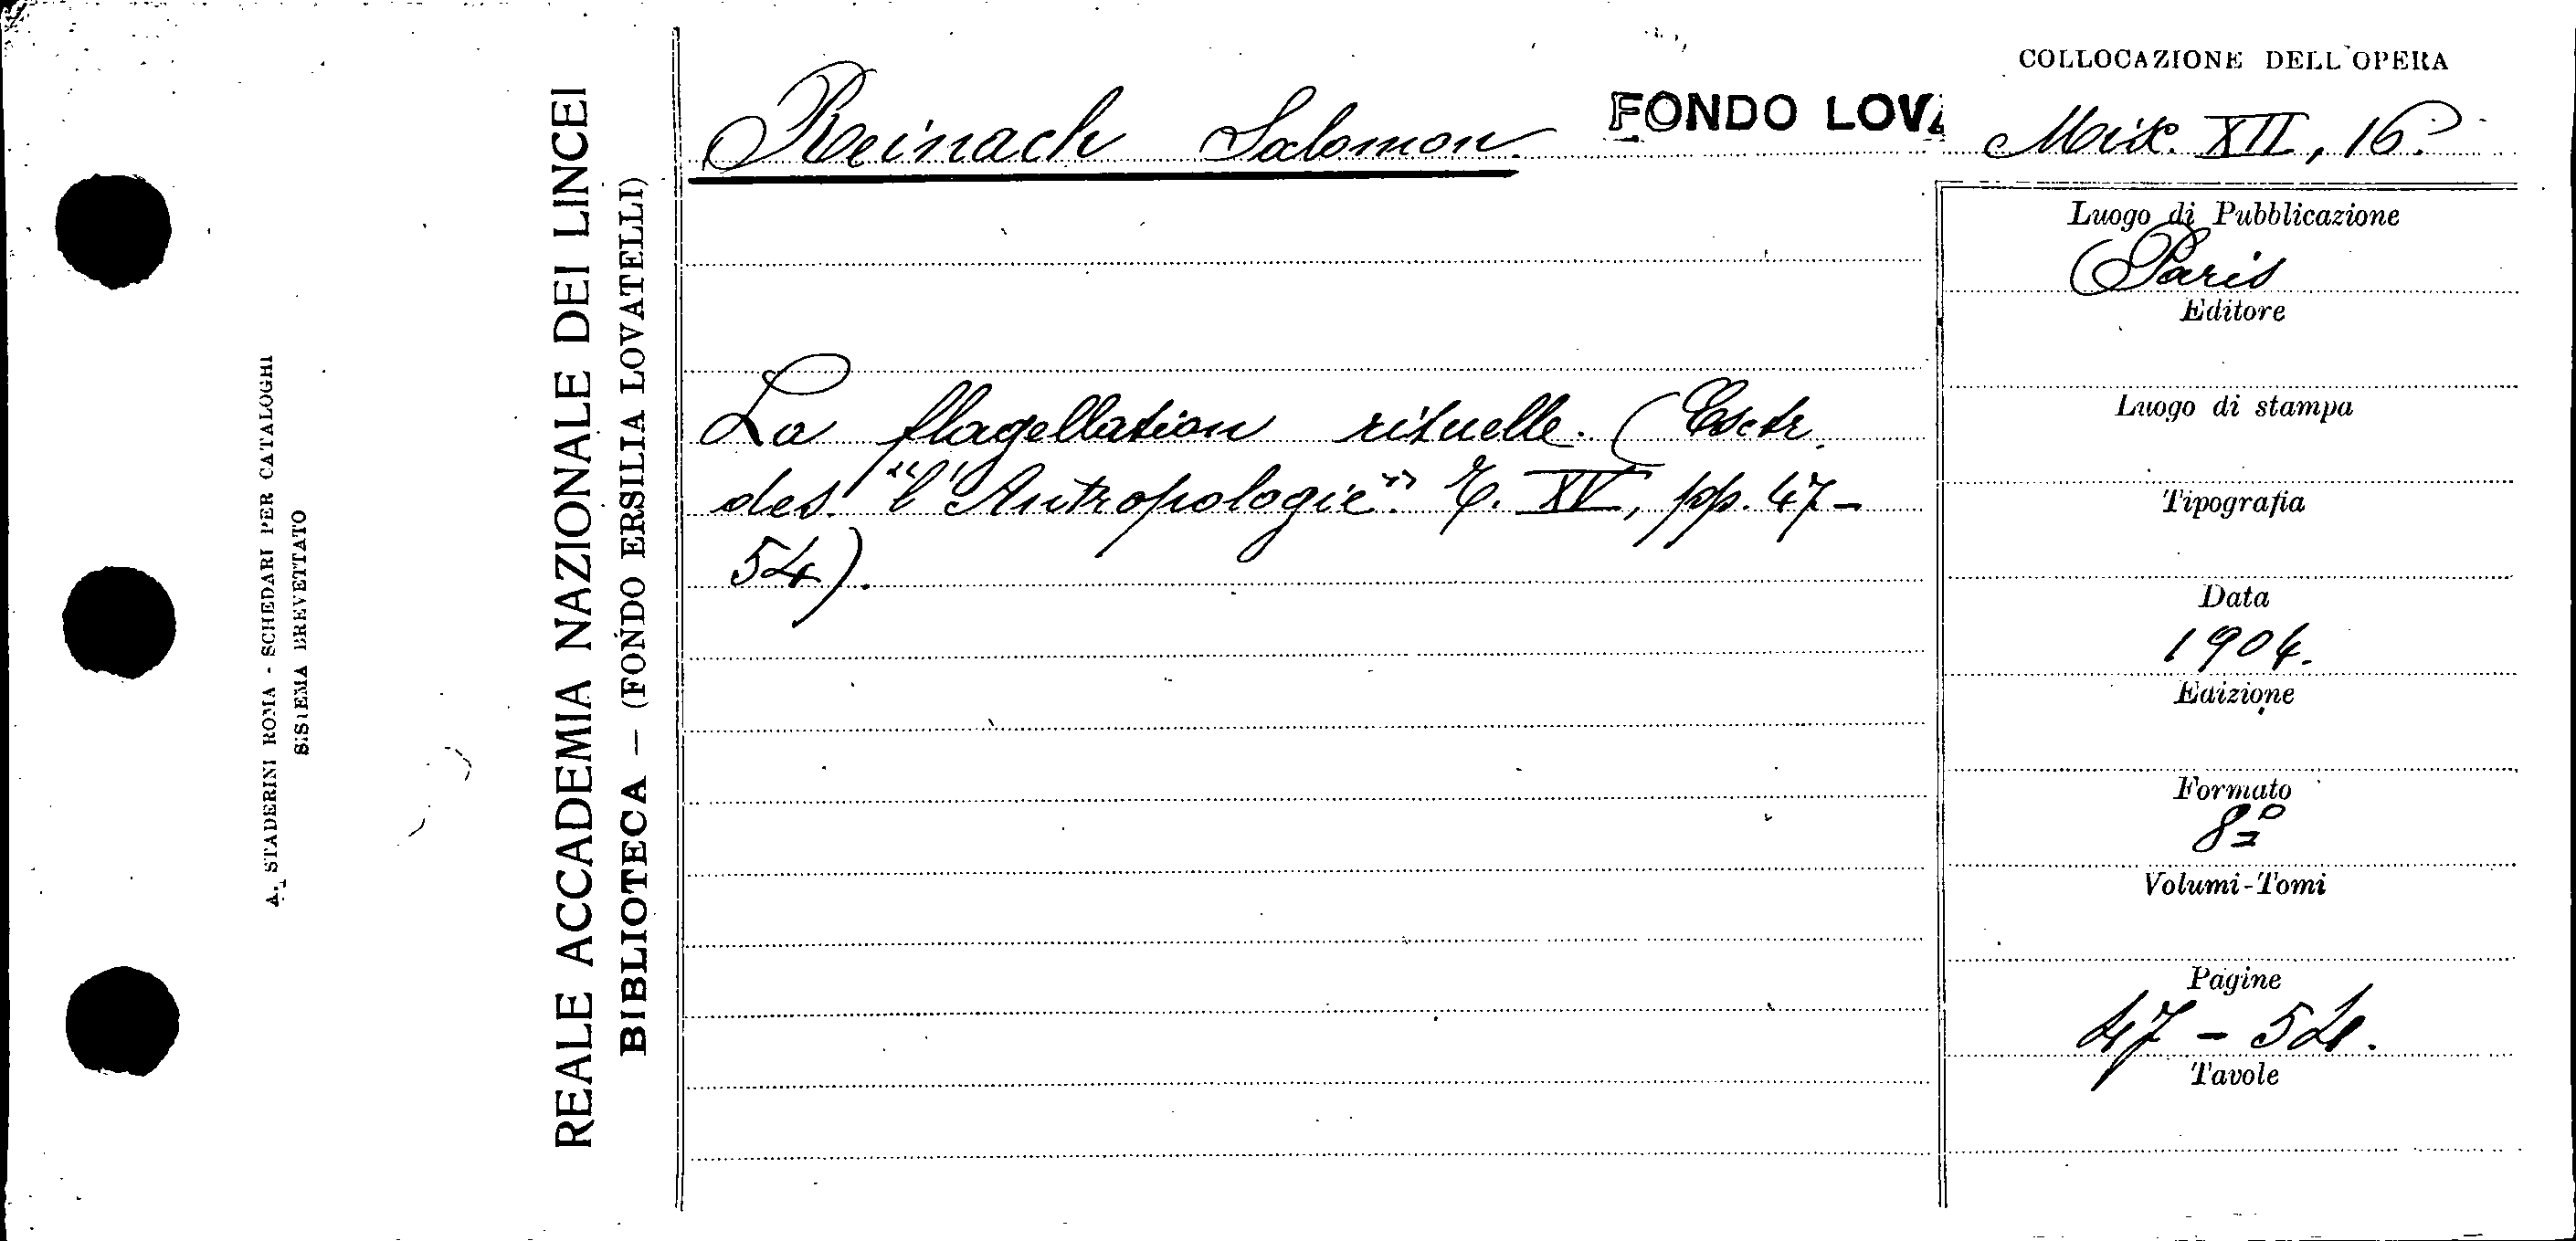 A. STADERINI ROMA - SCHEDARI PER CATALOGHI
SISTEMA BREVETTATO
REALE ACCADEMIA NAZIONALE DEI LINCEI
BIBLIOTECA — (FONDO ERSILIA LOVATELLI)
Reinach Salomon.
FONDO LOVA
COLLOCAZIONE DELL'OPERA
Misc. XII, 16.
La flagellation rituelle. (Extr.
des "l'Antropologie". T. XV, pp. 47-
54).
Luogo di Pubblicazione
Paris
Editore
Luogo di stampa
Tipografia
Data
1904.
Edizione
Formato
8º
Volumi-Tomi
Pagine
47 - 54.
Tavole